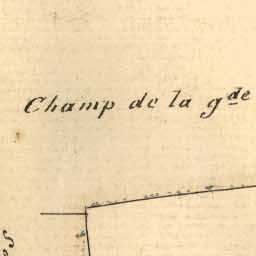 Champ de la gde